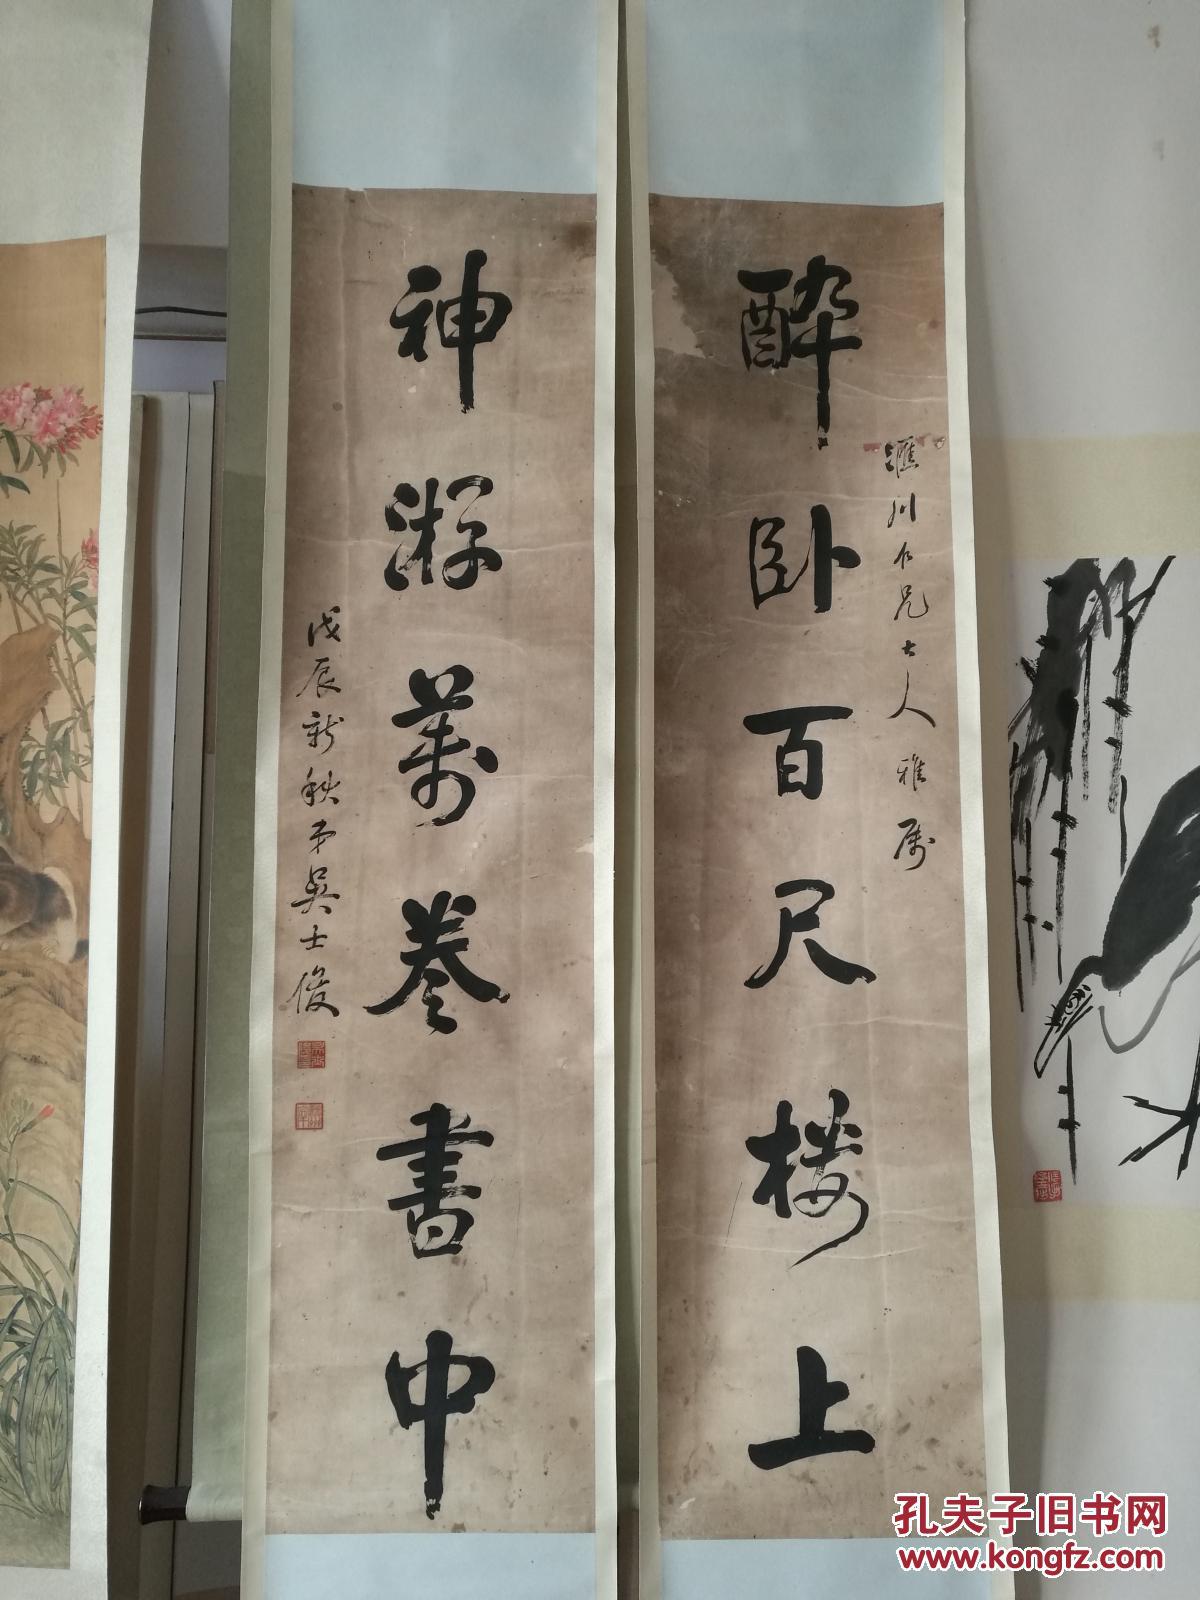 醉卧百尺楼上
滙川仁兄大人雅属
神游萬卷書中
戊辰新秋弟吴士俊
孔夫子旧书网
www.kongfz.com